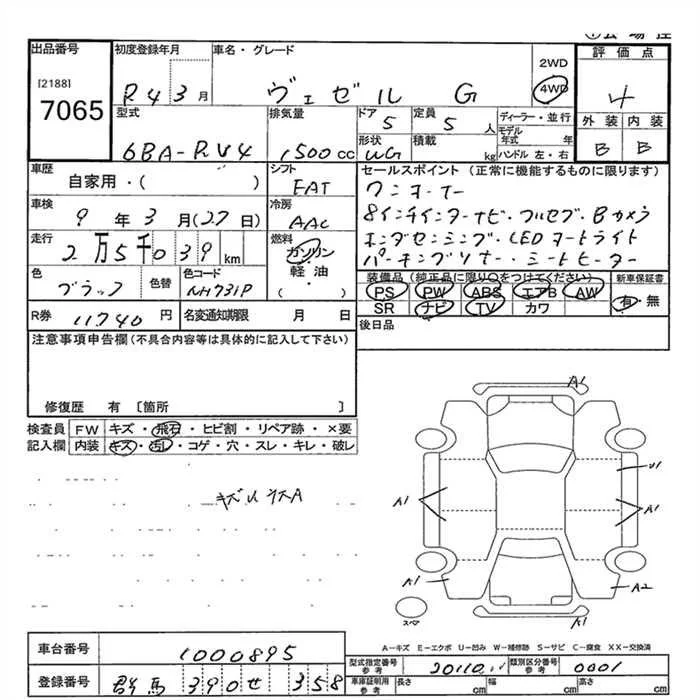 出品番号
[2188]
7065
初度登録年月
R4 3月
車名・グレード
ヴェゼル G
2WD
4WD
評価点
4
型式
6BA-RV4
排気量
1500 CC
ドア
5
定員
5 人
形状
WG
積載
kg
ディーラー・並行
モデル年式 年
ハンドル 左・右
外装 内装
B B
車歴
自家用・( )
シフト
FAT
セールスポイント (正常に機能するものに限ります)
ワンオーナー
8インチインターナビ・フルセグ・Bカメラ
ホンダセンシング・LEDヘッドライト
パーキングソナー・シートヒーター
車検
9年 3月(27日)
冷房
AAC
走行
2万5千039km
燃料
ガソリン
軽油
( ・ )
色
ブラック
色替
色コード
NH731P
装備品 (純正品に限り○をつけてください)
PS PW ABS エアB AW
SR ナビ TV カワ
新車保証書
有・無
R券 11740 円
名変通知期限 月 日
後日品
注意事項申告欄(不具合内容等は具体的に記入して下さい)
修復歴 有 〔箇所 〕
検査員 FW キズ・飛石・ヒビ割・リペア跡・×要
記入欄 内装 キズ・汚レ・コゲ・穴・スレ・キレ・破レ
A1
U1
A1
A1
A1
A2
A1
スペア
A-キズ E-エクボ U-凹み W-補修跡 S-サビ C-腐食 XX-交換済
車台番号 1000895
型式指定番号 参考 20110
類別区分番号 参考 0001
登録番号 群馬 390 せ 358
車庫証明用 参考 長さ cm 幅 cm 高さ cm